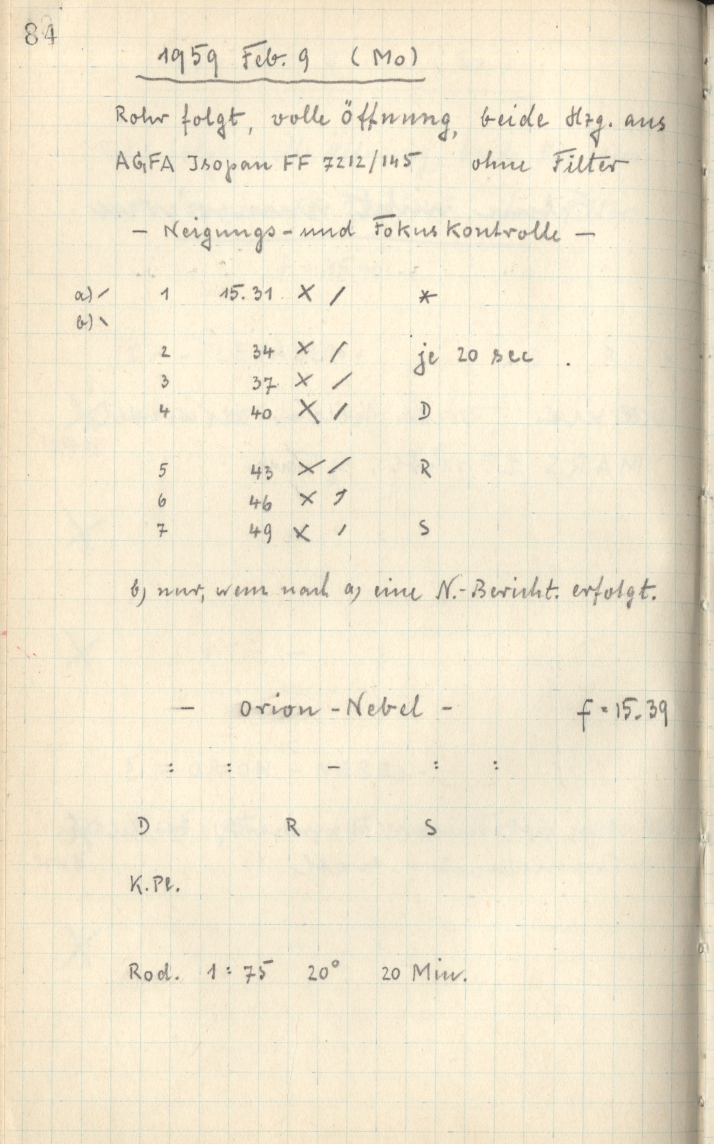 84
1959 Feb. 9 (Mo)
Rohr folgt, volle Öffnung, beide Hzg. aus
AGFA Isopan FF 7212/145 ohne Filter
- Neigungs- und Fokuskontrolle -
a) / 1 15.31 × / *
b) \
2 34 × / je 20 sec.
3 37 × /
4 40 × / D
5 43 × / R
6 46 × /
7 49 × / S
b) nur, wenn nach a) eine N.-Bericht. erfolgt.
- Orion-Nebel - f = 15.39
: : - : :
D R S
K.Pl.
Rod. 1:75 20° 20 Min.